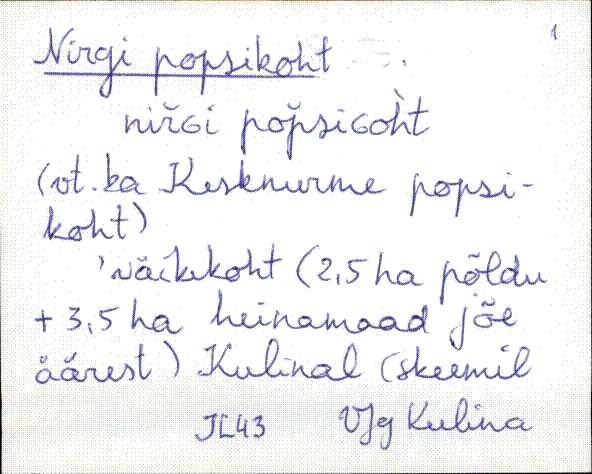 1
Nirgi popsikoht
nir̆Gi pop̆siGoh̀t
(vt. ka Kesknurme popsi-
koht)
'väikekoht (2,5 ha põldu
+ 3,5 ha heinamaad jõe
äärest) Kulinal (skeemil
JL43 VJg Kulina